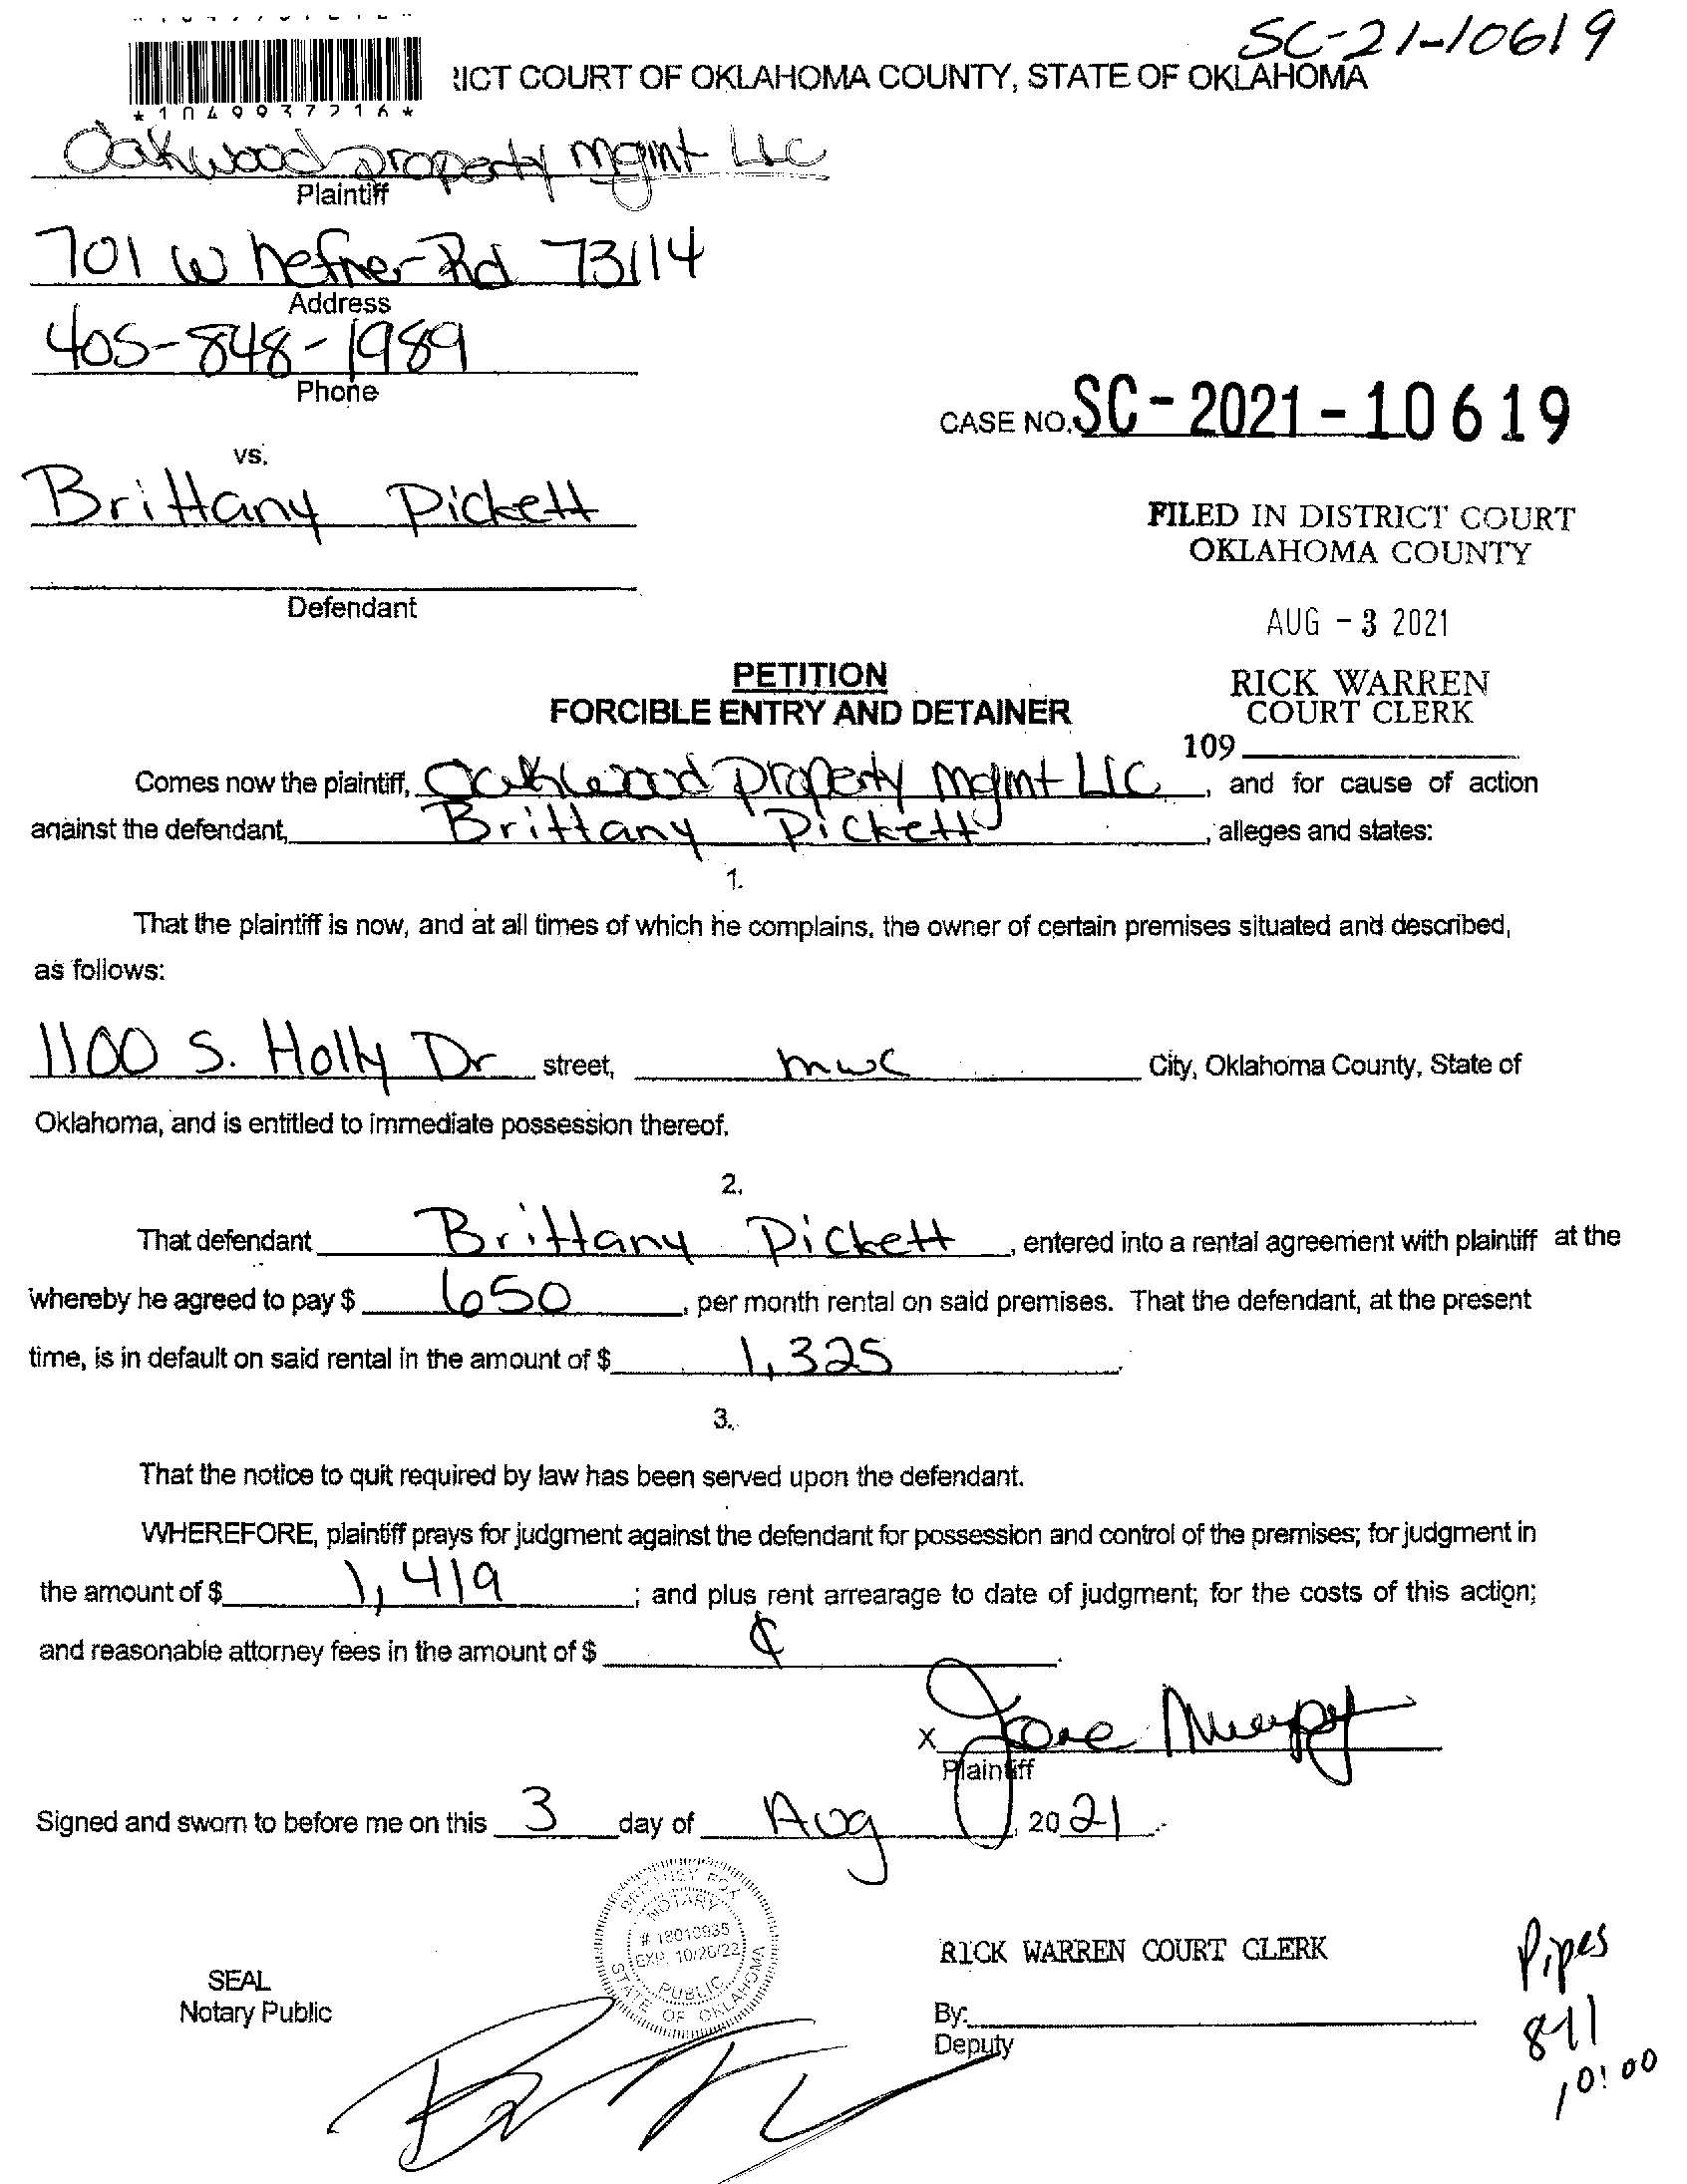 SC-21-10619
RICT COURT OF OKLAHOMA COUNTY, STATE OF OKLAHOMA
*1049937716*
Oakwood property mgmt LLC
Plaintiff
701 W hefner Rd 73114
Address
405-848-1989
Phone
CASE NO. SC-2021-10619
vs.
Brittany Pickett
FILED IN DISTRICT COURT
OKLAHOMA COUNTY
Defendant
AUG -3 2021
PETITION
FORCIBLE ENTRY AND DETAINER
RICK WARREN
COURT CLERK
109
Comes now the plaintiff, Oakwood Property Mgmt LLC, and for cause of action
against the defendant, Brittany Pickett, alleges and states:
1.
That the plaintiff is now, and at all times of which he complains, the owner of certain premises situated and described,
as follows:
1100 S. Holly Dr street, mwc City, Oklahoma County, State of
Oklahoma, and is entitled to immediate possession thereof.
2.
That defendant Brittany Pickett, entered into a rental agreement with plaintiff at the
whereby he agreed to pay $ 650, per month rental on said premises. That the defendant, at the present
time, is in default on said rental in the amount of $ 1,325.
3.
That the notice to quit required by law has been served upon the defendant.
WHEREFORE, plaintiff prays for judgment against the defendant for possession and control of the premises; for judgment in
the amount of $ 1,419; and plus rent arrearage to date of judgment; for the costs of this action;
and reasonable attorney fees in the amount of $ ¢.
X
Plaintiff
Signed and sworn to before me on this 3 day of Aug, 2021.
BRITTNEY FOX
NOTARY
# 18010935
EXP. 10/26/22
PUBLIC
STATE OF OKLAHOMA
SEAL
Notary Public
RICK WARREN COURT CLERK
By:
Deputy
Pipes
8-11
10:00